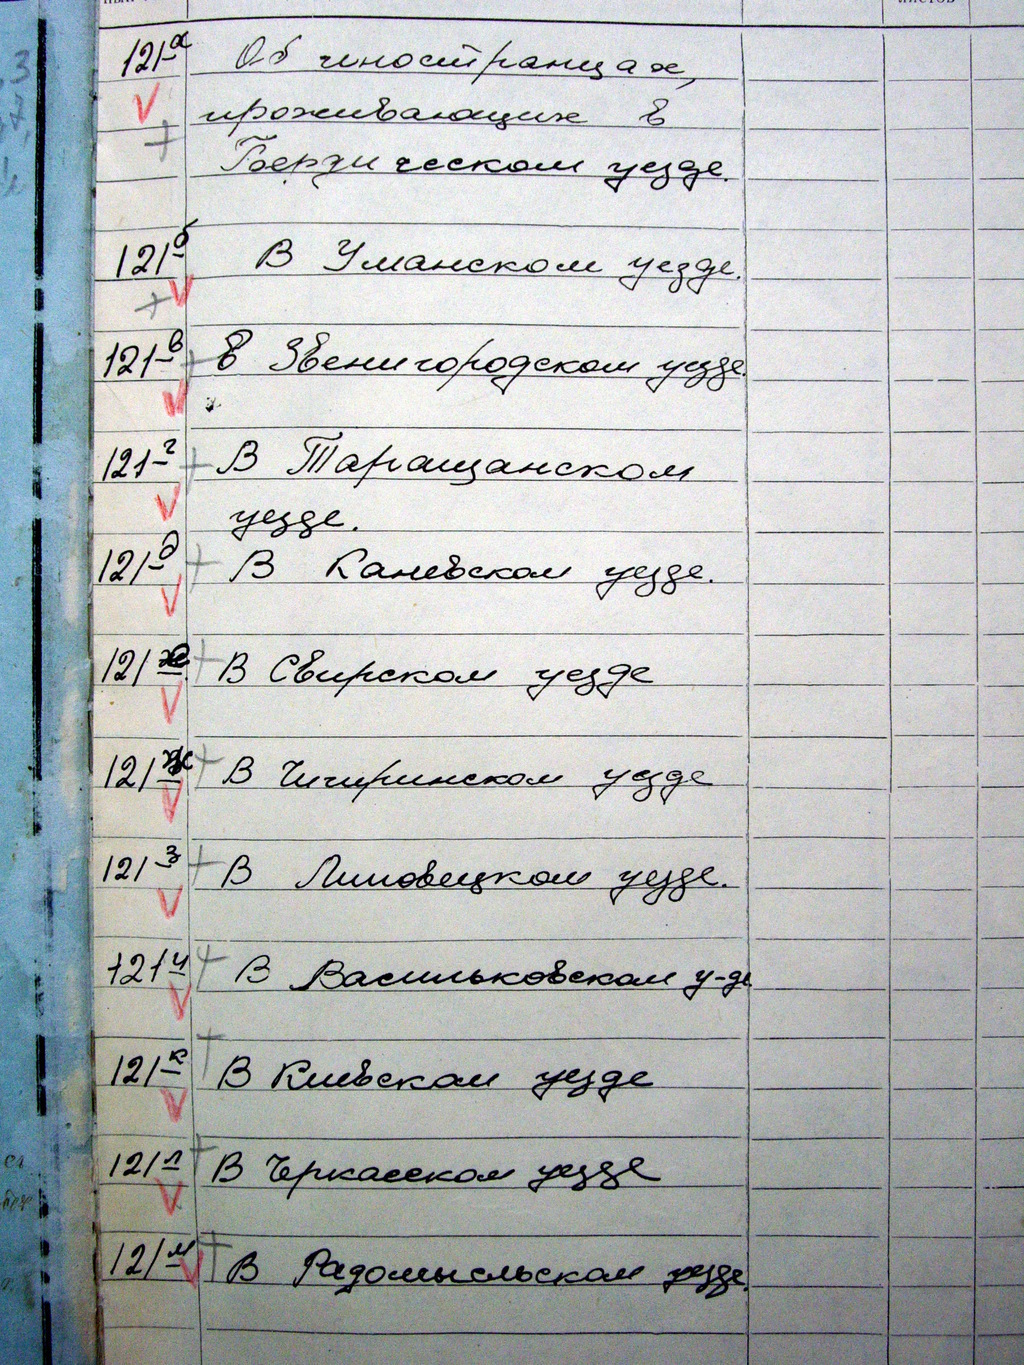 листов
121-а Об иностранцах,
проживающих в
Бердическом уезде.
121-б В Уманском уезде.
121-в В Звенигородском уезде.
121-г В Таращанском
уезде.
121-д В Каневском уезде.
121 В Свирском уезде
121-ж В Чигиринском уезде
121-з В Липовецком уезде.
121-и В Васильковском у-де
121-к В Киевском уезде
121-л В Черкасском уезде
121-м В Радомысльском уезде.